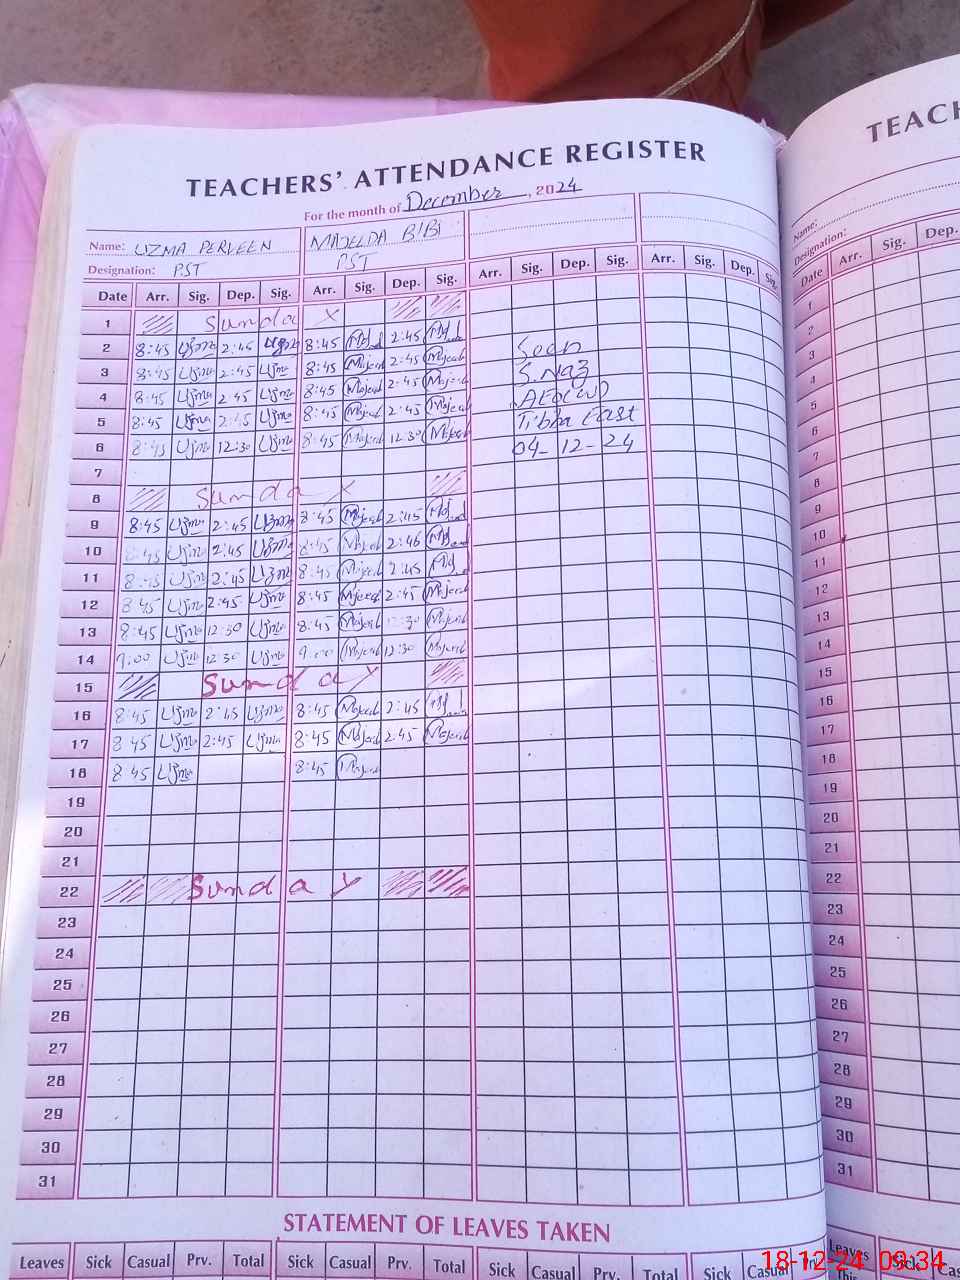 TEACHERS' ATTENDANCE REGISTER
For the month of December, 2024
Name: UZMA PERVEEN MAJEEDA BIBI
Designation: PST PST
Date Arr. Sig. Dep. Sig. Arr. Sig. Dep. Sig. Arr. Sig. Dep. Sig. Arr. Sig. Dep. Sig.
1 Sunday
2 8:45 Uzma 2:45 Uzma 8:45 2:45
3 8:45 Uzma 2:45 Uzma 8:45 Majeed 2:45 Majeed
4 8:45 Uzma 2:45 Uzma 8:45 Majeed 2:45 Majeed
5 8:45 Uzma 2:45 Uzma 8:45 Majeed 2:45 Majeed
6 8:45 Uzma 12:30 Uzma 8:45 Majeed 12:30 Majeed
Seen
S.Naz
AEO(W)
Tibba East
04-12-24
7
8 Sunday
9 8:45 Uzma 2:45 Uzma 8:45 Majeed 2:45
10 8:45 Uzma 2:45 Uzma 8:45 Majeed 2:46
11 8:45 Uzma 2:45 Uzma 8:45 Majeed 2:45
12 8:45 Uzma 2:45 Uzma 8:45 Majeed 2:45 Majeed
13 8:45 Uzma 12:30 Uzma 8:45 Majeed 12:30 Majeed
14 9:00 Uzma 12:30 Uzma 9:00 Majeed 12:30 Majeed
15 Sunday
16 8:45 Uzma 2:45 Uzma 8:45 Majeed 2:45
17 8:45 Uzma 2:45 Uzma 8:45 Majeed 2:45 Majeed
18 8:45 Uzma 8:45 Majeed
19
20
21
22 Sunday
23
24
25
26
27
28
29
30
31
STATEMENT OF LEAVES TAKEN
Leaves Sick Casual Prv. Total Sick Casual Prv. Total Sick Casual Prv. Total Sick Casual
TEACH
Name:
Designation:
Date Arr. Sig. Dep.
1
2
3
4
5
6
7
8
9
10
11
12
13
14
15
16
17
18
19
20
21
22
23
24
25
26
27
28
29
30
31
Leaves Sick
18-12-24 09:34